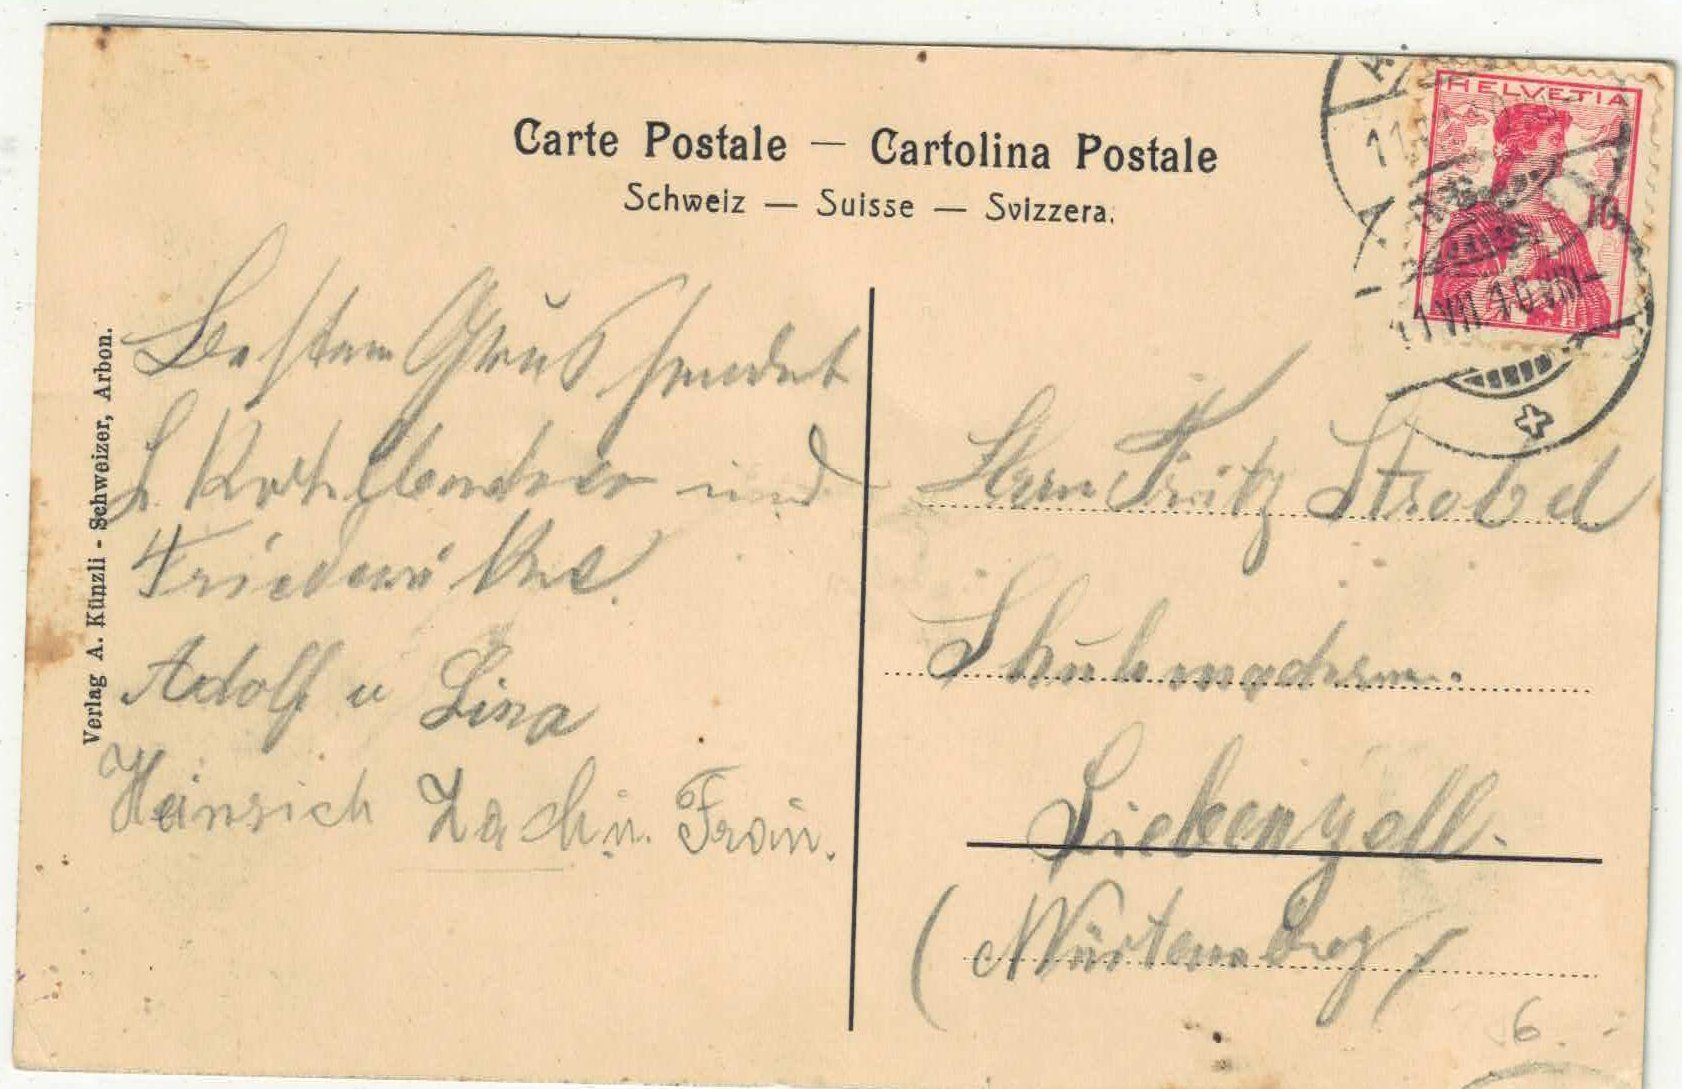 Carte Postale — Cartolina Postale
Schweiz — Suisse — Svizzera.
HELVETIA
10
11 VII 10 VIII—
Verlag A. Künzli - Schweizer, Arbon.
Besten Gruß sendet
und
Adolf u Lina
Heinrich Zach u. Frau.
Herrn Fritz Strobel
Liebenzell.
(Würtemberg)
6.